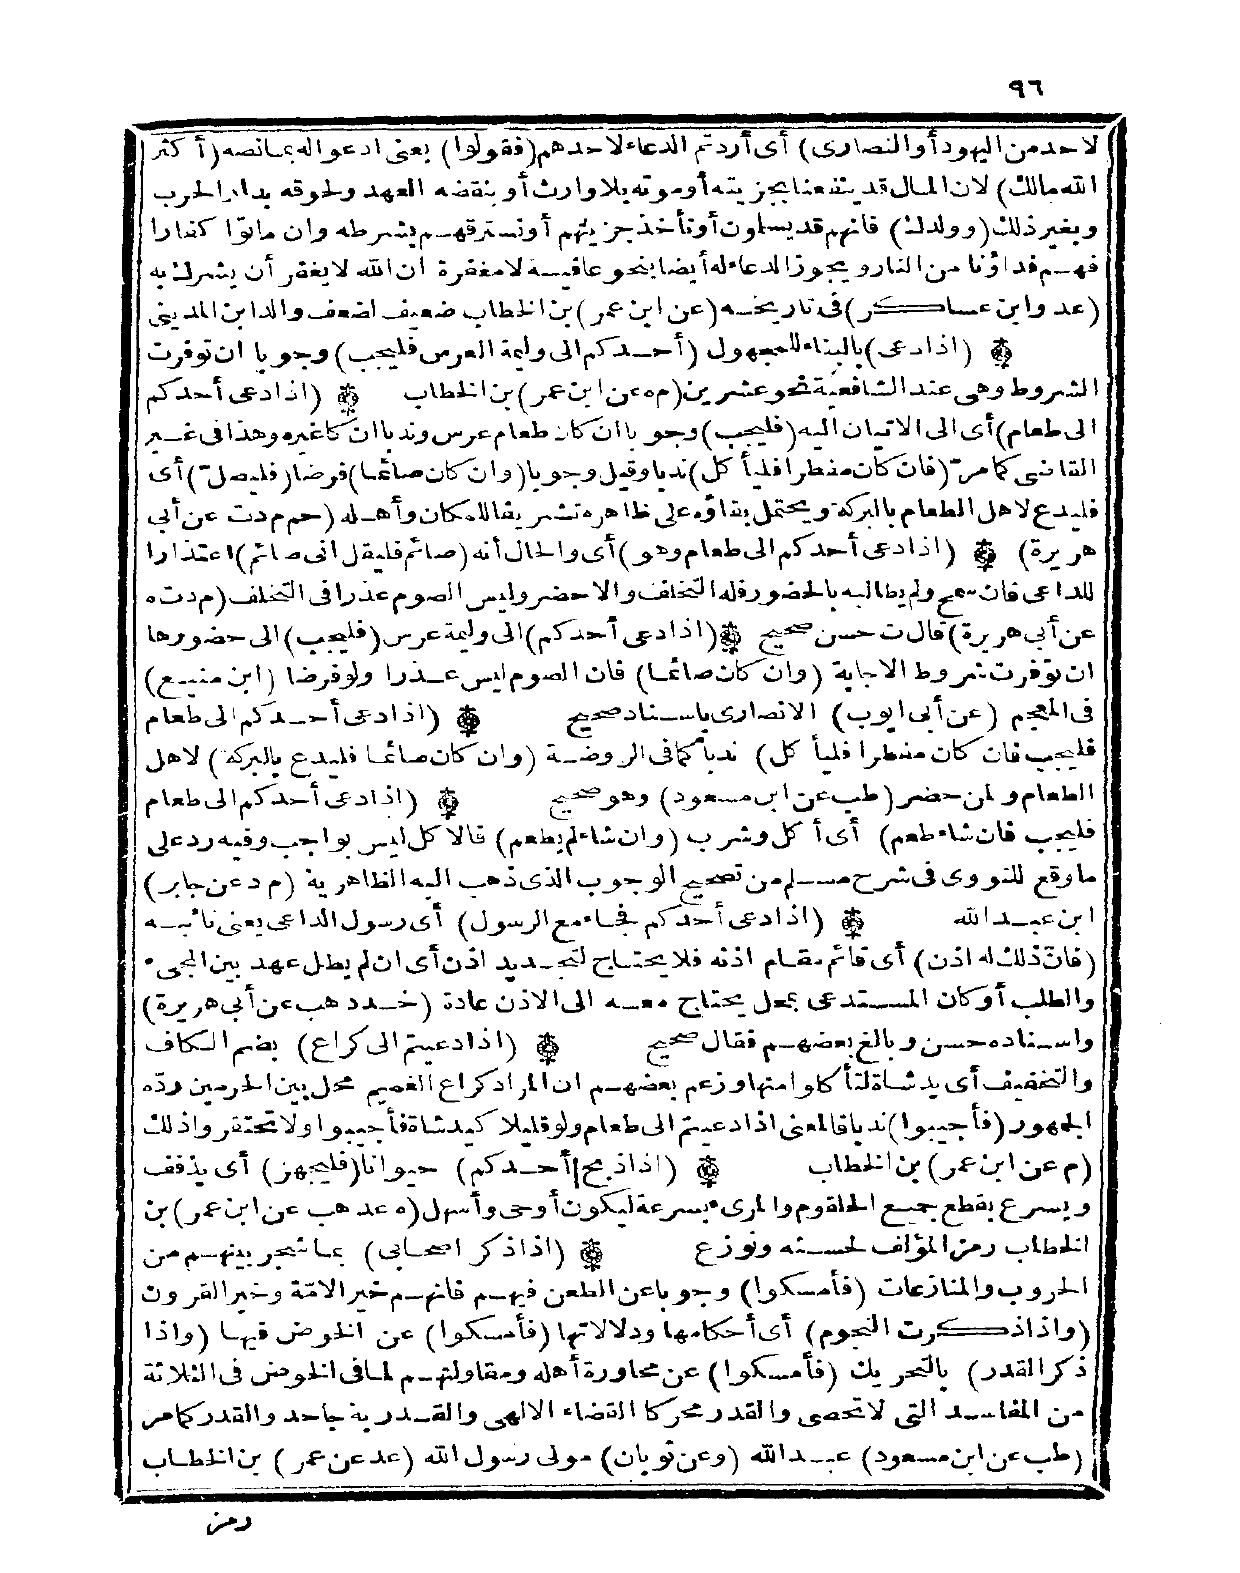 ٩٦
لاحد من اليهود أو النصارى) أى أردتم الدعاء لاحدهم (فقولوا) يعنى ادعوا له بما نصه (أكثر
الله مالك) لان المال قد ينفعنا بجزيته أو موته بلا وارث أو بنقضه العهد ولحوقه بدار الحرب
وبغير ذلك (وولدك) فانهم قد يسلمون أو نأخذ جزيتهم أو نسترقهم بشرطه وان ماتوا كفارا
فهم فداؤنا من النار ويجوز الدعاء له أيضا بنحو عافية لا مغفرة ان الله لا يغفر أن يشرك به
(عد وابن عساكر) فى تاريخه (عن ابن عمر) بن الخطاب ضعيف لضعف والد ابن المدينى
(اذا دعى) بالبناء للمجهول (أحدكم الى وليمة العرس فليجب) وجوبا ان توفرت
الشروط وهى عند الشافعية نحو عشرين (م ه عن ابن عمر) بن الخطاب (اذا دعى أحدكم
الى طعام) أى الى الاتيان اليه (فليجب) وجوبا ان كان طعام عرس وندبا ان كان غيره وهذا فى غير
القاضى كما مرّ (فان كان مفطرا فليأكل) ندبا وقيل وجوبا (وان كان صائما) فرضا (فليصلّ) أى
فليدع لاهل الطعام بالبركة ويحتمل بقاؤه على ظاهره تشريفا للمكان وأهله (حم م د ت عن أبى
هريرة) (اذا دعى أحدكم الى طعام وهو) أى والحال أنه (صائم فليقل انى صائم) اعتذارا
للداعى فان سمح ولم يطالبه بالحضور فله التخلف والا حضر وليس الصوم عذرا فى التخلف (م د ت ه
عن أبى هريرة) قال ت حسن صحيح (اذا دعى أحدكم) الى وليمة عرس (فليجب) الى حضورها
ان توفرت شروط الاجابة (وان كان صائما) فان الصوم ليس عذرا ولو فرضا (ابن منيع)
فى المعجم (عن أبى ايوب) الانصارى باسناد صحيح (اذا دعى أحدكم الى طعام
فليجب فان كان مفطرا فليأكل) ندبا كما فى الروضة (وان كان صائما فليدع بالبركة) لاهل
الطعام ولمن حضر (طب عن ابن مسعود) وهو صحيح (اذا دعى أحدكم الى طعام
فليجب فان شاء طعم) أى أكل وشرب (وان شاء لم يطعم) فالاكل ليس بواجب وفيه رد على
ما وقع للنووى فى شرح مسلم من تصحيح الوجوب الذى ذهب اليه الظاهرية (م د عن جابر)
ابن عبد الله (اذا دعى أحدكم فجاء مع الرسول) أى رسول الداعى يعنى نائبه
(فان ذلك له اذن) أى قائم مقام اذنه فلا يحتاج لتجديد اذن أى ان لم يطل عهد بين المجىء
والطلب أو كان المستدعى بمحل يحتاج معه الى الاذن عادة (خد د هب عن أبى هريرة)
واسناده حسن وبالغ بعضهم فقال صحيح (اذا دعيتم الى كراع) بضم الكاف
والتخفيف أى يد شاة لتأكلوا منها وزعم بعضهم ان المراد كراع الغميم محل بين الحرمين ردّه
الجمهور (فأجيبوا) ندبا فالمعنى اذا دعيتم الى طعام ولو قليلا كيد شاة فأجيبوا ولا تحتقروا ذلك
(م عن ابن عمر) بن الخطاب (اذا ذبح أحدكم) حيوانا (فليجهز) أى يذفف
ويسرع بقطع جميع الحلقوم والمرىء بسرعة ليكون أوحى وأسهل (ه عد هب عن ابن عمر) بن
الخطاب رمز المؤلف لحسنه ونوزع (اذا ذكر اصحابى) بما شجر بينهم من
الحروب والمنازعات (فأمسكوا) وجوبا عن الطعن فيهم فانهم خير الامّة وخير القرون
(واذا ذكرت النجوم) أى أحكامها ودلالاتها (فأمسكوا) عن الخوض فيها (واذا
ذكر القدر) بالتحريك (فأمسكوا) عن محاورة أهله ومقاولتهم لما فى الخوض فى الثلاثة
من المفاسد التى لا تحصى والقدر محركا القضاء الالهى والقدرية جاحد والقدر كما مر
(طب عن ابن مسعود) عبد الله (وعن ثوبان) مولى رسول الله (عد عن عمر) بن الخطاب
رمز